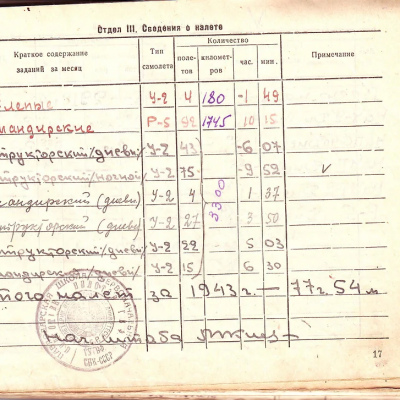 Отдел III. Сведения о налете
Краткое содержание заданий за месяц
Тип самолета
Количество
Примечание
поле-тов
километ-ров
час.
мин.
слепые У-2 4 180 -1 49
мандирские Р-5 92 1745 10 15
структорский/дневн/ У-2 43 -6 07
структорский/ночной/ У-2 75- -9 52 ✓
командирский (дневн) У-2 4 1 37
структорский (дневн) У-2 27 3 50
структорский/дневн/ У-2 22 5 03
мандирский/дневн/ У-2 15 6 30
3300
того налет за 1943 г. — 77 г. 54 м
Нач. штаба
17